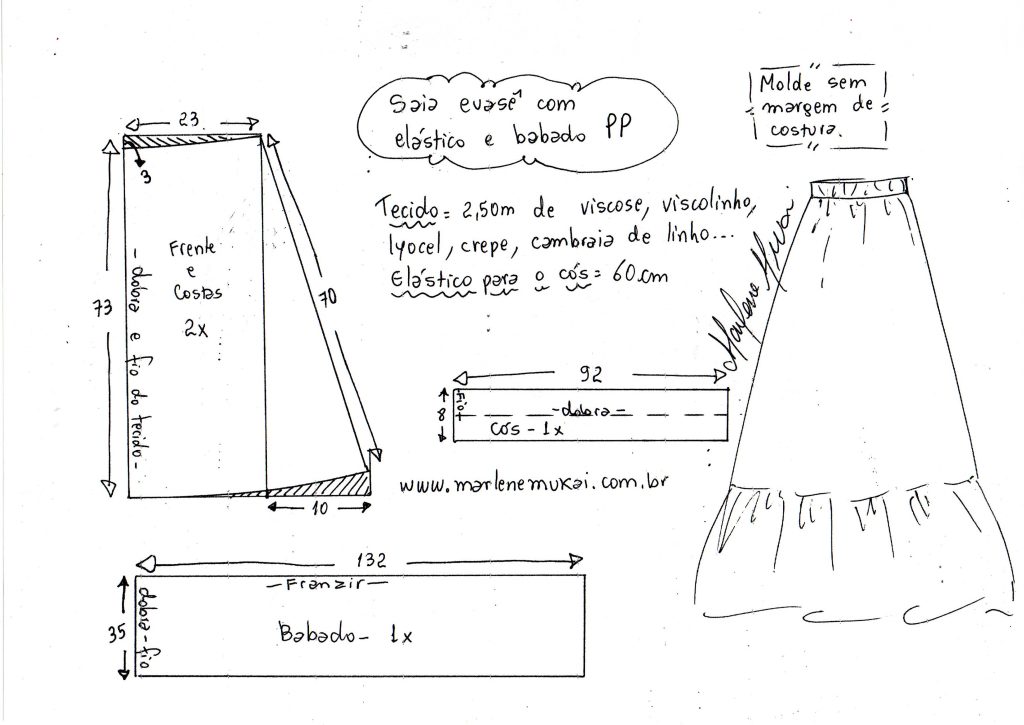 Saia evasê com
elástico e babado PP
Molde sem
margem de
costura.
Tecido = 2,50m de viscose, viscolinho,
lyocel, crepe, cambraia de linho...
Elástico para o cós = 60.cm
23
3
Frente
e
Costas
2x
73
- dobra e fio do tecido -
70
10
92
8
Fio
- dobra -
cós - 1x
Marlene Mukai
www.marlenemukai.com.br
132
- Franzir -
35
dobra - fio
Babado - 1x